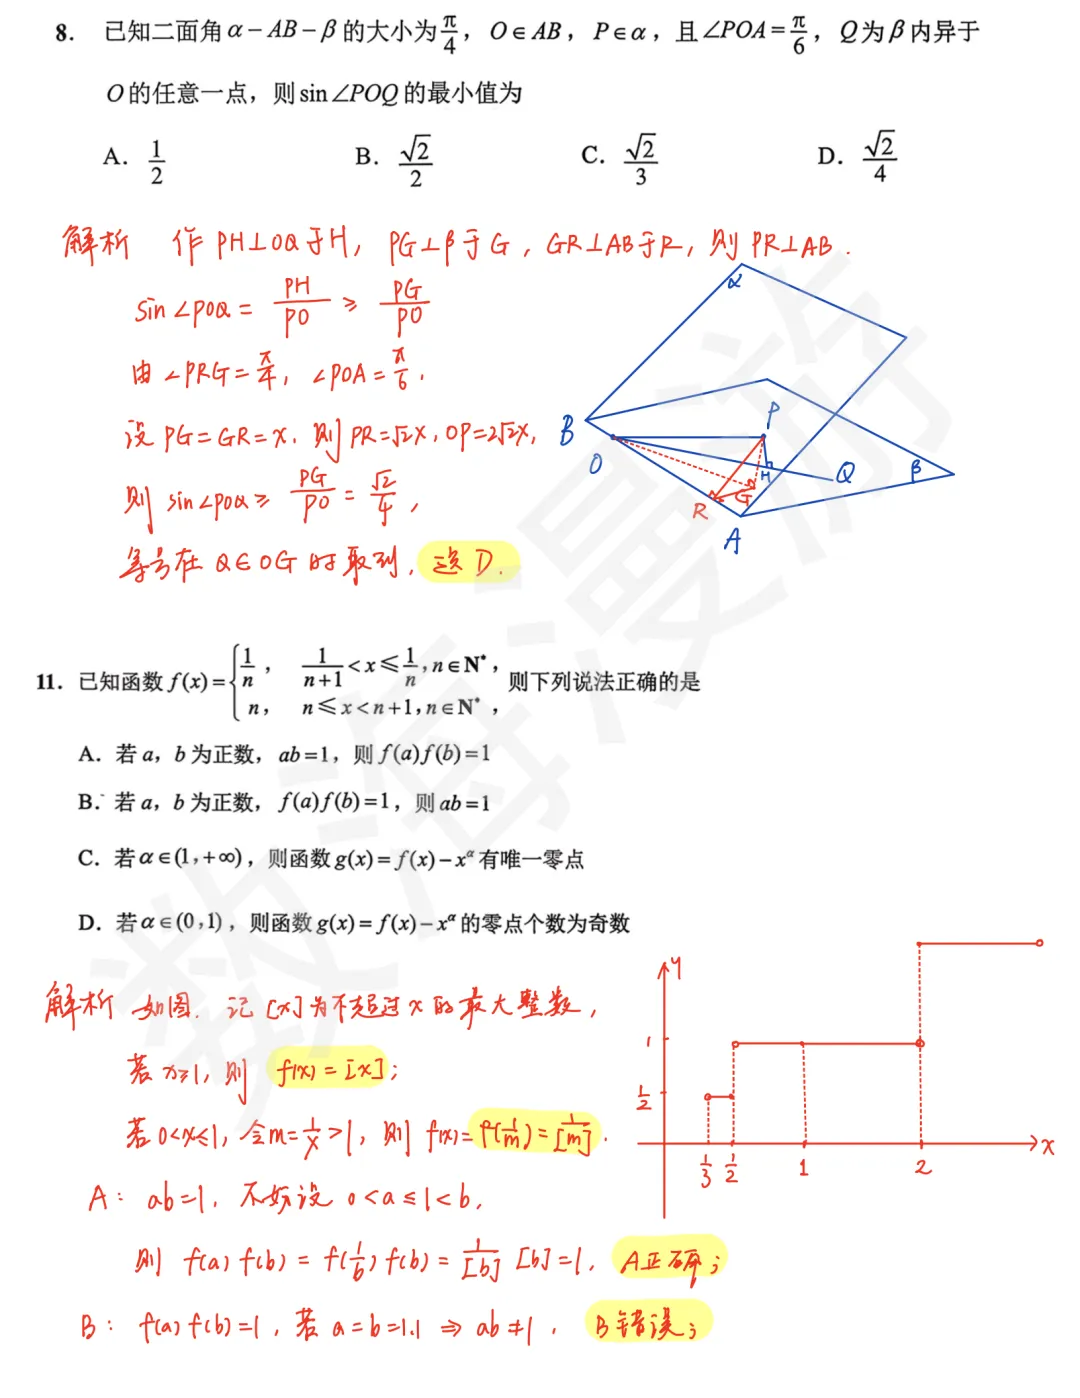 8. 已知二面角 α-AB-β 的大小为 π/4, O∈AB, P∈α, 且∠POA=π/6, Q为β内异于
O的任意一点, 则 sin∠POQ 的最小值为
A. 1/2 B. √2/2 C. √2/3 D. √2/4
解析 作 PH⊥OQ于H, PG⊥β于G, GR⊥AB于R, 则 PR⊥AB.
sin∠POQ = PH/PO ≥ PG/PO
由∠PRG=π/4, ∠POA=π/6.
设 PG=GR=x. 则 PR=√2x, OP=2√2x,
则 sin∠POQ ≥ PG/PO = √2/4,
等号在 Q∈OG 时取到, 选 D.
α
B
O
P
H
Q
β
G
R
A
11. 已知函数 f(x)={1/n, 1/(n+1)<x≤1/n, n∈N*,
n, n≤x<n+1, n∈N*, 则下列说法正确的是
A. 若 a, b 为正数, ab=1, 则 f(a)f(b)=1
B. 若 a, b 为正数, f(a)f(b)=1, 则 ab=1
C. 若 α∈(1,+∞), 则函数 g(x)=f(x)-x^α 有唯一零点
D. 若 α∈(0,1), 则函数 g(x)=f(x)-x^α 的零点个数为奇数
解析 如图. 记 [x] 为不超过 x 的最大整数,
若 x≥1, 则 f(x)=[x];
若 0<x≤1, 令 m=1/x>1, 则 f(x)=f(1/m)=1/[m].
A: ab=1, 不妨设 0<a≤1<b,
则 f(a)f(b)=f(1/b)f(b)=1/[b] [b]=1, A正确;
B: f(a)f(b)=1, 若 a=b=1.1 ⇒ ab≠1, B错误;
y
1
1/2
1/3 1/2 1 2 x
数海漫游